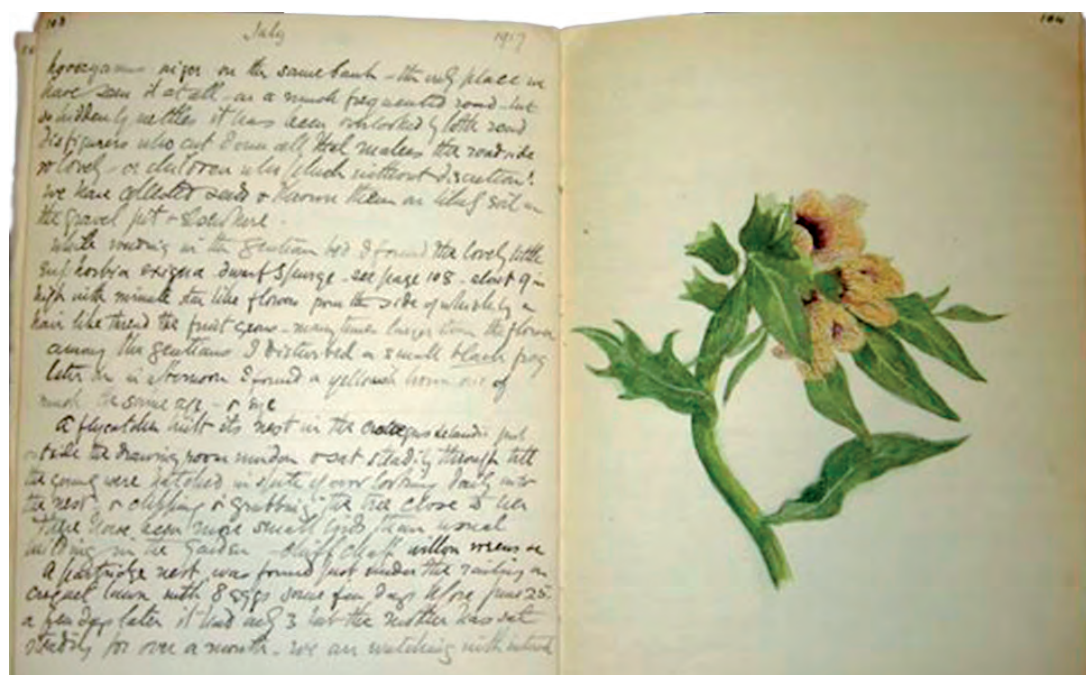 103
July 1917
niger on the same bank - the only place we
have seen it at all - on a much frequented road - but
suddenly nettles it has been overlooked by both road
disfigurers who cut down all that makes the roadside
so lovely - or children who pluck without discretion!
we have collected seeds & thrown them on likely soil in
the gravel pit & elsewhere -
While weeding in the gentian bed I found the lovely little
Euphorbia exigua dwarf spurge - see page 108 - about 9 in
high with minute star like flowers from the side of which by a
hair like thread the fruit grows - many times larger than the flower
among the gentians I disturbed a small black frog
later on in afternoon I found a yellowish brown one of
much the same age - & size
a flycatcher built its nest in the just
outside the drawing room window & sat steadily through till
the young were hatched in spite of our looking daily into
the nest - & clipping & grubbing the tree close to her
There have been more small birds than usual
building in the garden - chiff chaff willow wrens &c
A partridge nest was found just under the railing on
croquet lawn with 8 eggs some few days before June 25.
a few days later it had only 3 but the mother has sat
steadily for over a month - we are watching with interest
104